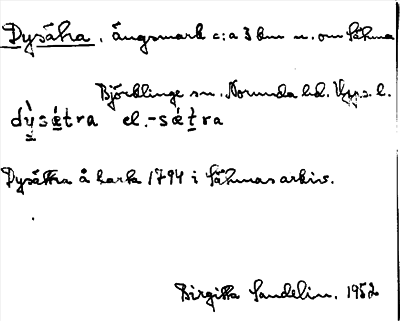 Dysätra, ängsmark c:a 3 km n. om Sätuna
Björklinge sn. Norunda hd. Upps. l.
dy̌sétra el. -sétra
Dysättra å karta 1794 i Sätunas arkiv.
Birgitta Sandelin. 1952